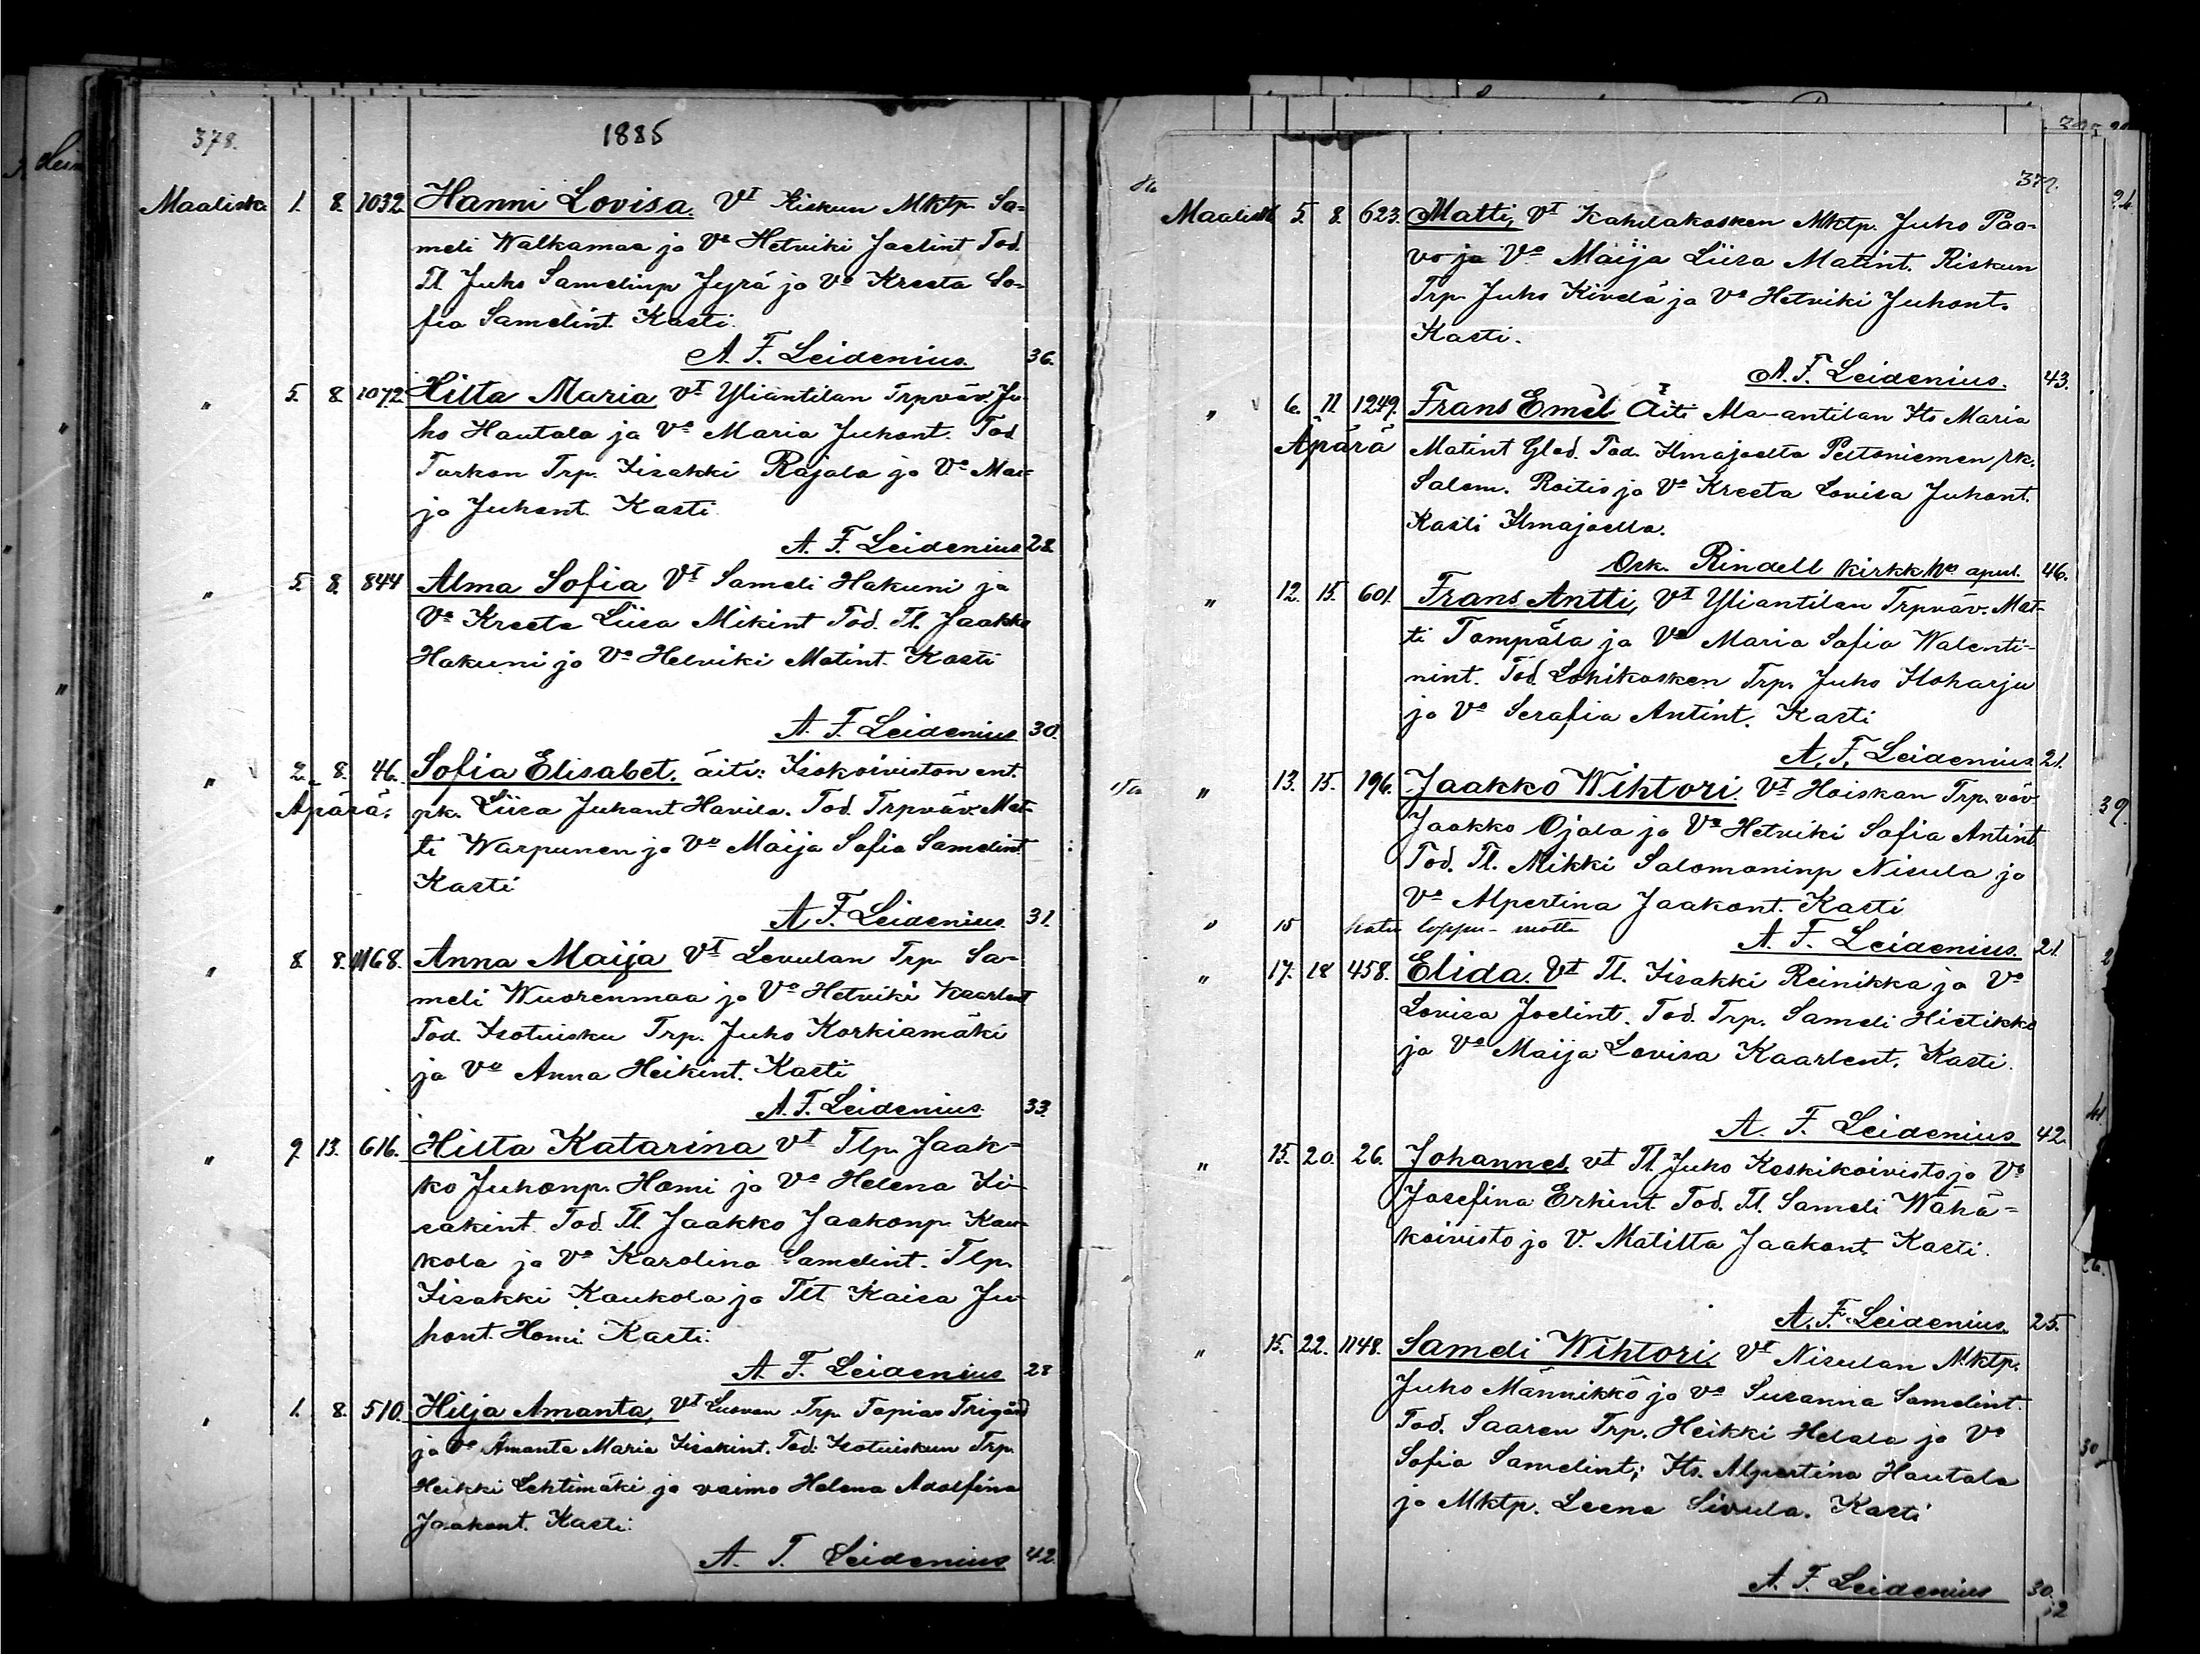 378.
1885
Maalisk. 1. 8. 1032 Hanni Lovisa. Vt Riskun Mktp. Sa-
meli Walkamaa ja Vo Hetviki Joelint Tod.
Tl. Juho Samelinp Jyrä ja Vo Kreeta So-
fia Samelint. Kasti.
A. F. Leidenius. 36.
" 5. 8. 1072. Hilta Maria Vt Yliantilan Trpväv. Ju-
ho Hautala ja Vo Maria Juhont. Tod
Turkan Trp. Iisakki Rajala ja Vo Mai-
ja Juhont. Kasti
A. F. Leidenius 28.
" 5. 8. 844 Alma Sofia Vt Sameli Hakuni ja
Vo Kreeta Liisa Mikint Tod. Tl. Jaakko
Hakuni ja Vo Hetviki Matint. Kasti
A. F. Leidenius 30.
" 2. 8. 46. Sofia Elisabet. äiti: Isokoiviston ent.
Äpärä. pk. Liisa Juhant Havila. Tod. Trpväv. Mat-
ti Warpunen ja Vo Maija Sofia Samelint
Kasti
A. F. Leidenius. 31.
" 8. 8. 1168. Anna Maija Vt Levulan Trp. Sa-
meli Wuorenmaa ja Vo Hetviki Kaarlent
Tod. Isotuisku Trp. Juho Korkiamäki
ja Vo Anna Heikint. Kasti
A. F. Leidenius. 33.
" 9. 13. 616. Hilta Katarina Vt Tlp. Jaak-
ko Juhonp. Homi ja Vo Helena Ii-
sakint. Tod. Tl. Jaakko Jaakonp. Kau-
kola ja Vo Karolina Samelint. Tlp.
Iisakki Kaukola ja Tlt Kaisa Ju-
hont. Homi. Kasti.
A. F. Leidenius 28
" 1. 8. 510. Hilja Amanta, Vt Luoman Trp. Topias Trigård
ja Vo Amanta Maria Iisakint. Tod: Isotuiskun Trp.
Heikki Lehtimäki ja vaimo Helena Adolfina
Jaakont. Kasti:
A. F. Leidenius 42.
379.
Maalisk 5. 8. 623. Matti, Vt Kahilakosken Mktp. Juho Paa-
vo ja Vo Maija Liisa Matint. Riskun
Trp. Juho Kivelä ja Vo Hetviki Juhont.
Kasti.
A. F. Leidenius. 43.
" 6. 11 1249. Frans Emel Äiti Ala-antilan Its Maria
Äpärä Matint Glad. Tod. Ilmajoelta Peltoniemen pk.
Salom. Roitio ja Vo Kreeta Lovisa Juhont.
Kasti Ilmajoella.
Osk. Rindell kirkkhrn apul. 46.
" 12. 15. 601. Frans Antti, Vt Yliantilan Trpväv. Mat-
ti Tompäla ja Vo Maria Sofia Walenti-
nint. Tod. Lohikosken Trp. Juho Iloharju
ja Vo Serafia Antint. Kasti
A. F. Leidenius 21.
" 13. 15. 196. Jaakko Wihtori. Vt Hoiskan Trp. väv
Jaakko Ojala ja Vo Hetviki Sofia Antint
Tod. Tl. Mikki Salomoninp Nisula ja
Vo Alpertina Jaakont. Kasti
" 15 katso loppu-
A. F. Leidenius. 21.
" 17. 18 458. Elida. Vt Tl. Iisakki Reinikka ja Vo
Lovisa Joelint. Tod. Trp. Sameli Hietikko
ja Vo Maija Lovisa Kaarlent. Kasti.
A. F. Leidenius 42.
" 15. 20. 26. Johannes Vt Tl. Juho Keskikoivisto ja Vo
Josefina Erkint. Tod. Tl. Sameli Wähä-
koivisto ja V. Matilta Jaakont. Kasti.
A. F. Leidenius. 25.
" 15. 22. 1148. Sameli Wihtori. Vt Nisulan Mktp.
Juho Männikkö ja Vo Susanna Samelint.
Tod. Saaren Trp. Heikki Helala ja Vo
Sofia Samelint; Its. Alpertina Hautala
ja Mktp. Leena Sivula. Kasti
A. F. Leidenius 30.